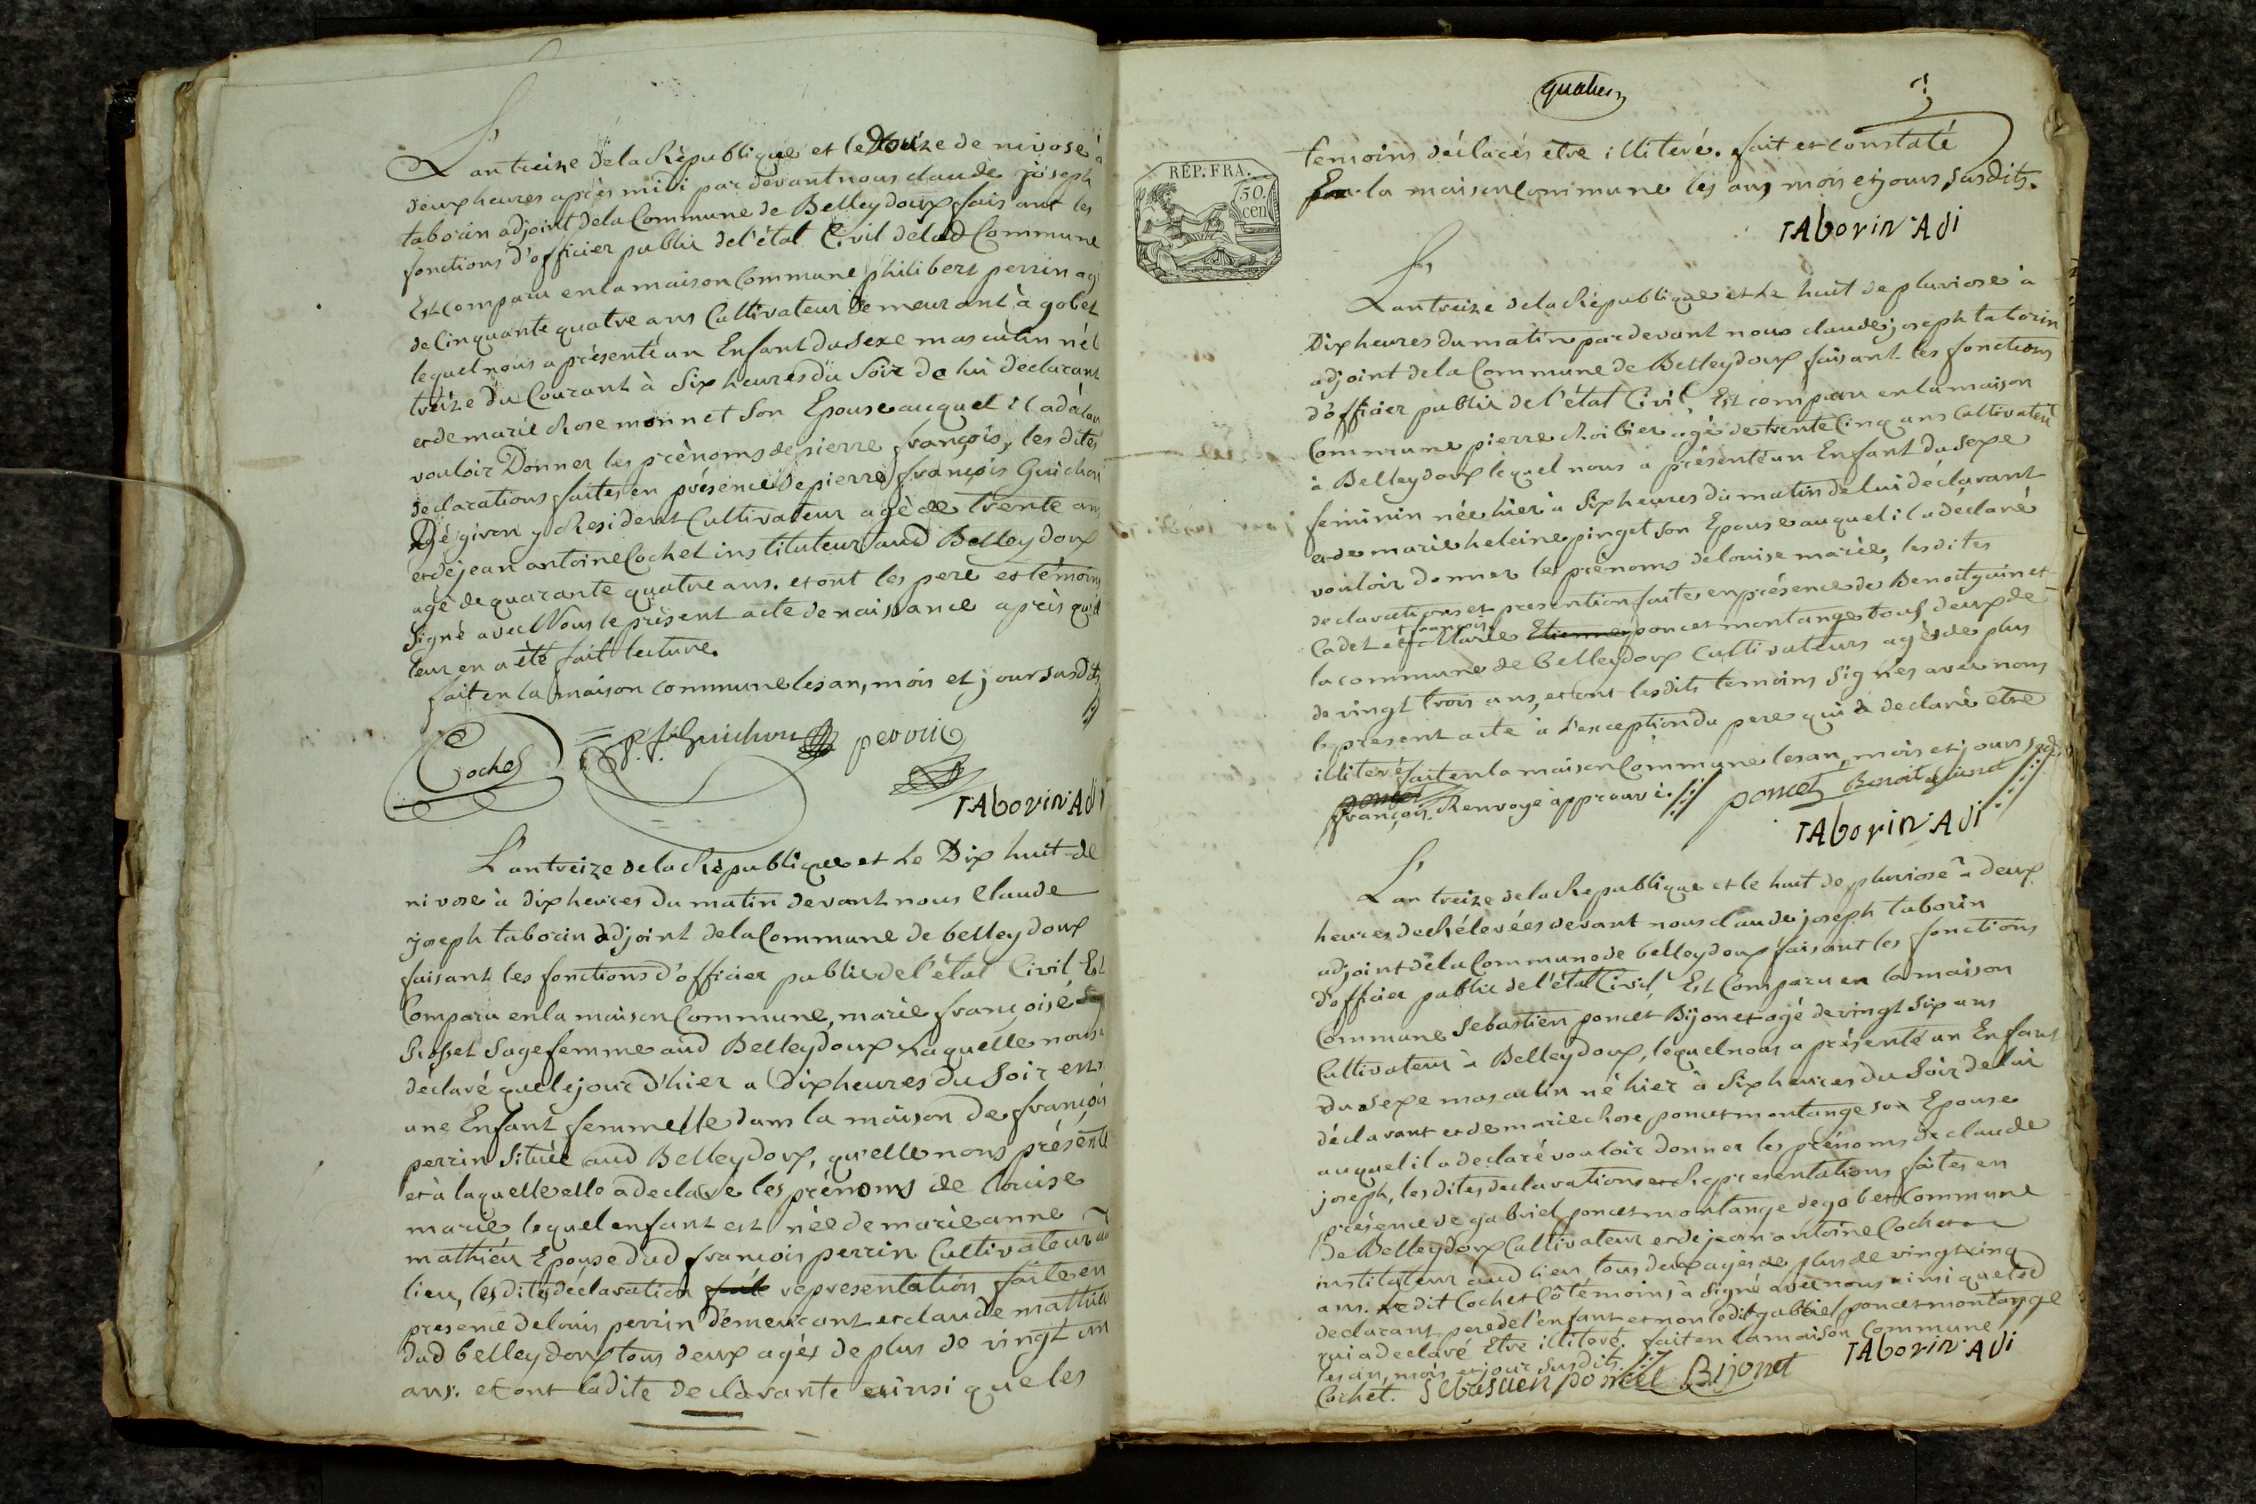 L'an treize de la République et le de nivose à
deux heures après midi par devant nous claude joseph
taborin adjoint de la Commune de Belleydoux faisant les
fonctions d'officier public de l'état Civil delad Commune
Est comparu en la maison Commune philibert perrin agé
de Cinquante quatre ans Cultivateur demeurant à gobet
lequel nous a présenté un Enfant du Sexe masculin né l
treize du Courant à Six heures du Soir de lui déclarant
et de marie Rose monnet Son Epouse auquel il a déclaré
vouloir Donner les prénoms de pierre françois, les dites
declarations faites en présence de pierre françois Guichon
Dégiron y Resident Cultivateur agé de trente ans
et de jean antoine Cochet instituteur aud Belleydoux
agé de quarante quatre ans. et ont les pere et témoins
Signé avec Nous le présent acte de naissance après qu'il
leur en a été fait lecture.
fait en la maison commune les an, mois et jour susdits
Cochet p. f. Guichon perrin
TAborin Adj
L'an treize de la République et le Dix huit de
nivose à dix heures du matin devant nous Claude
joseph taborin adjoint de la Commune de belleydoux
faisant les fonctions d'officier public de l'état Civil Est
Comparu en la maison Commune, marie françoise
Sage femme aud Belleydoux Laquelle nous a
déclaré que le jour d'hier a Dix heures du Soir est
une Enfant femmelle dans la maison de françois
perrin Située aud Belleydoux, qu'elle nous présente
et à laquelle elle a declaré les prénoms de louise
marie lequel enfant est née de marie anne
mathieu Epouse dud françois perrin Cultivateur au
lieu, les dites déclaration fait representation faites en
presence de louis perrin demeurant et claude mathieu
dud belleydoux tous deux agés de plus de vingt un
ans. et ont ladite declarante ainsi que les
quatre
RÉP. FRA.
50.
cen
temoins déclarés etre illiteré. fait et constaté
En la maison Commune les an, mois et jours susdits.
TAborin Adj
L'an treize de la République et le huit de pluviose à
Dix heures du matin par devant nous claude joseph taborin
adjoint de la Commune de Belleydoux faisant les fonctions
d'officier public de l'état Civil, Est comparu en la maison
Commune pierre agé de trente Cinq ans Cultivateur
à Belleydoux lequel nous a présenté un Enfant du Sexe
feminin née hier à Six heures du matin de lui déclarant
et de marie heleine pinget son Epouse auquel il a déclaré
vouloir donner les prénoms de louise marie, les dites
declarations et presention faites en présence de Benoit guinet
Cadet et françois Marie Etienne poncet montange tous deux de
la commune de belleydoux Cultivateurs agés de plus
de vingt trois ans, et ont les dits temoins Signés avec nous
le present acte à l'exception du pere qui a declaré etre
illiteré fait en la maison Commune les an, mois et jours susd
poncet Benoit guinet
françois Renvoyé approuvé.
TAborin Adj
L'an treize de la Republique et le huit de pluviose à deux
heures de Rélevées devant nous claude joseph taborin
adjoint de la Commune de belleydoux faisant les fonctions
d'officier public de l'état Civil, Est Comparu en la maison
Commune Sebastien poncet Bijonet agé de vingt Six ans
Cultivateur à Belleydoux, lequel nous a présenté un Enfant
du Sexe masculin né hier à Six heures du Soir de lui
déclarant et de marie Rose poncet montange son Epouse
auquel il a declaré vouloir donner les prénoms de claude
joseph, les dites declarations et Representations faites en
présence de gabriel poncet montange de gobet Commune
De Belleydoux Cultivateur et de jean antoine Cochet
instituteur aud lieu tous deux agés de plus de vingt cinq
ans. Le dit Cochet Cô témoins à Signé avec nous ainsi que led
declarant pere de l'enfant et non ledit gabriel poncet montange
qui a declaré Etre illiteré. fait en la maison Commune
les an, mois et jour susdits.
Cochet. Sebastien poncet Bijonet TAborin Adj